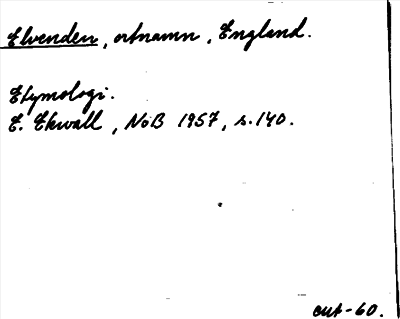 Elvenden, ortnamn, England.
Etymologi.
E. Ekwall, NoB 1957, s. 140.
eut-60.